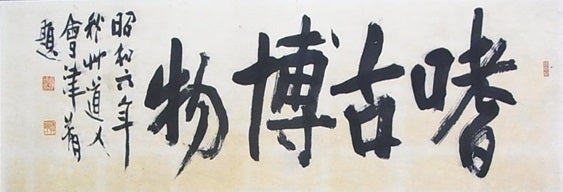 嗜古博物
昭和六年
秋艸道人
會津八朔
題